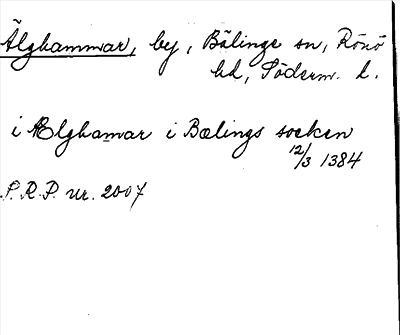 Älghammar, by, Bälinge sn, Rönö
hd, Söderm. l.
i Ælghamar i Bælings socken
12/3 1384
P.R.P. nr. 2007